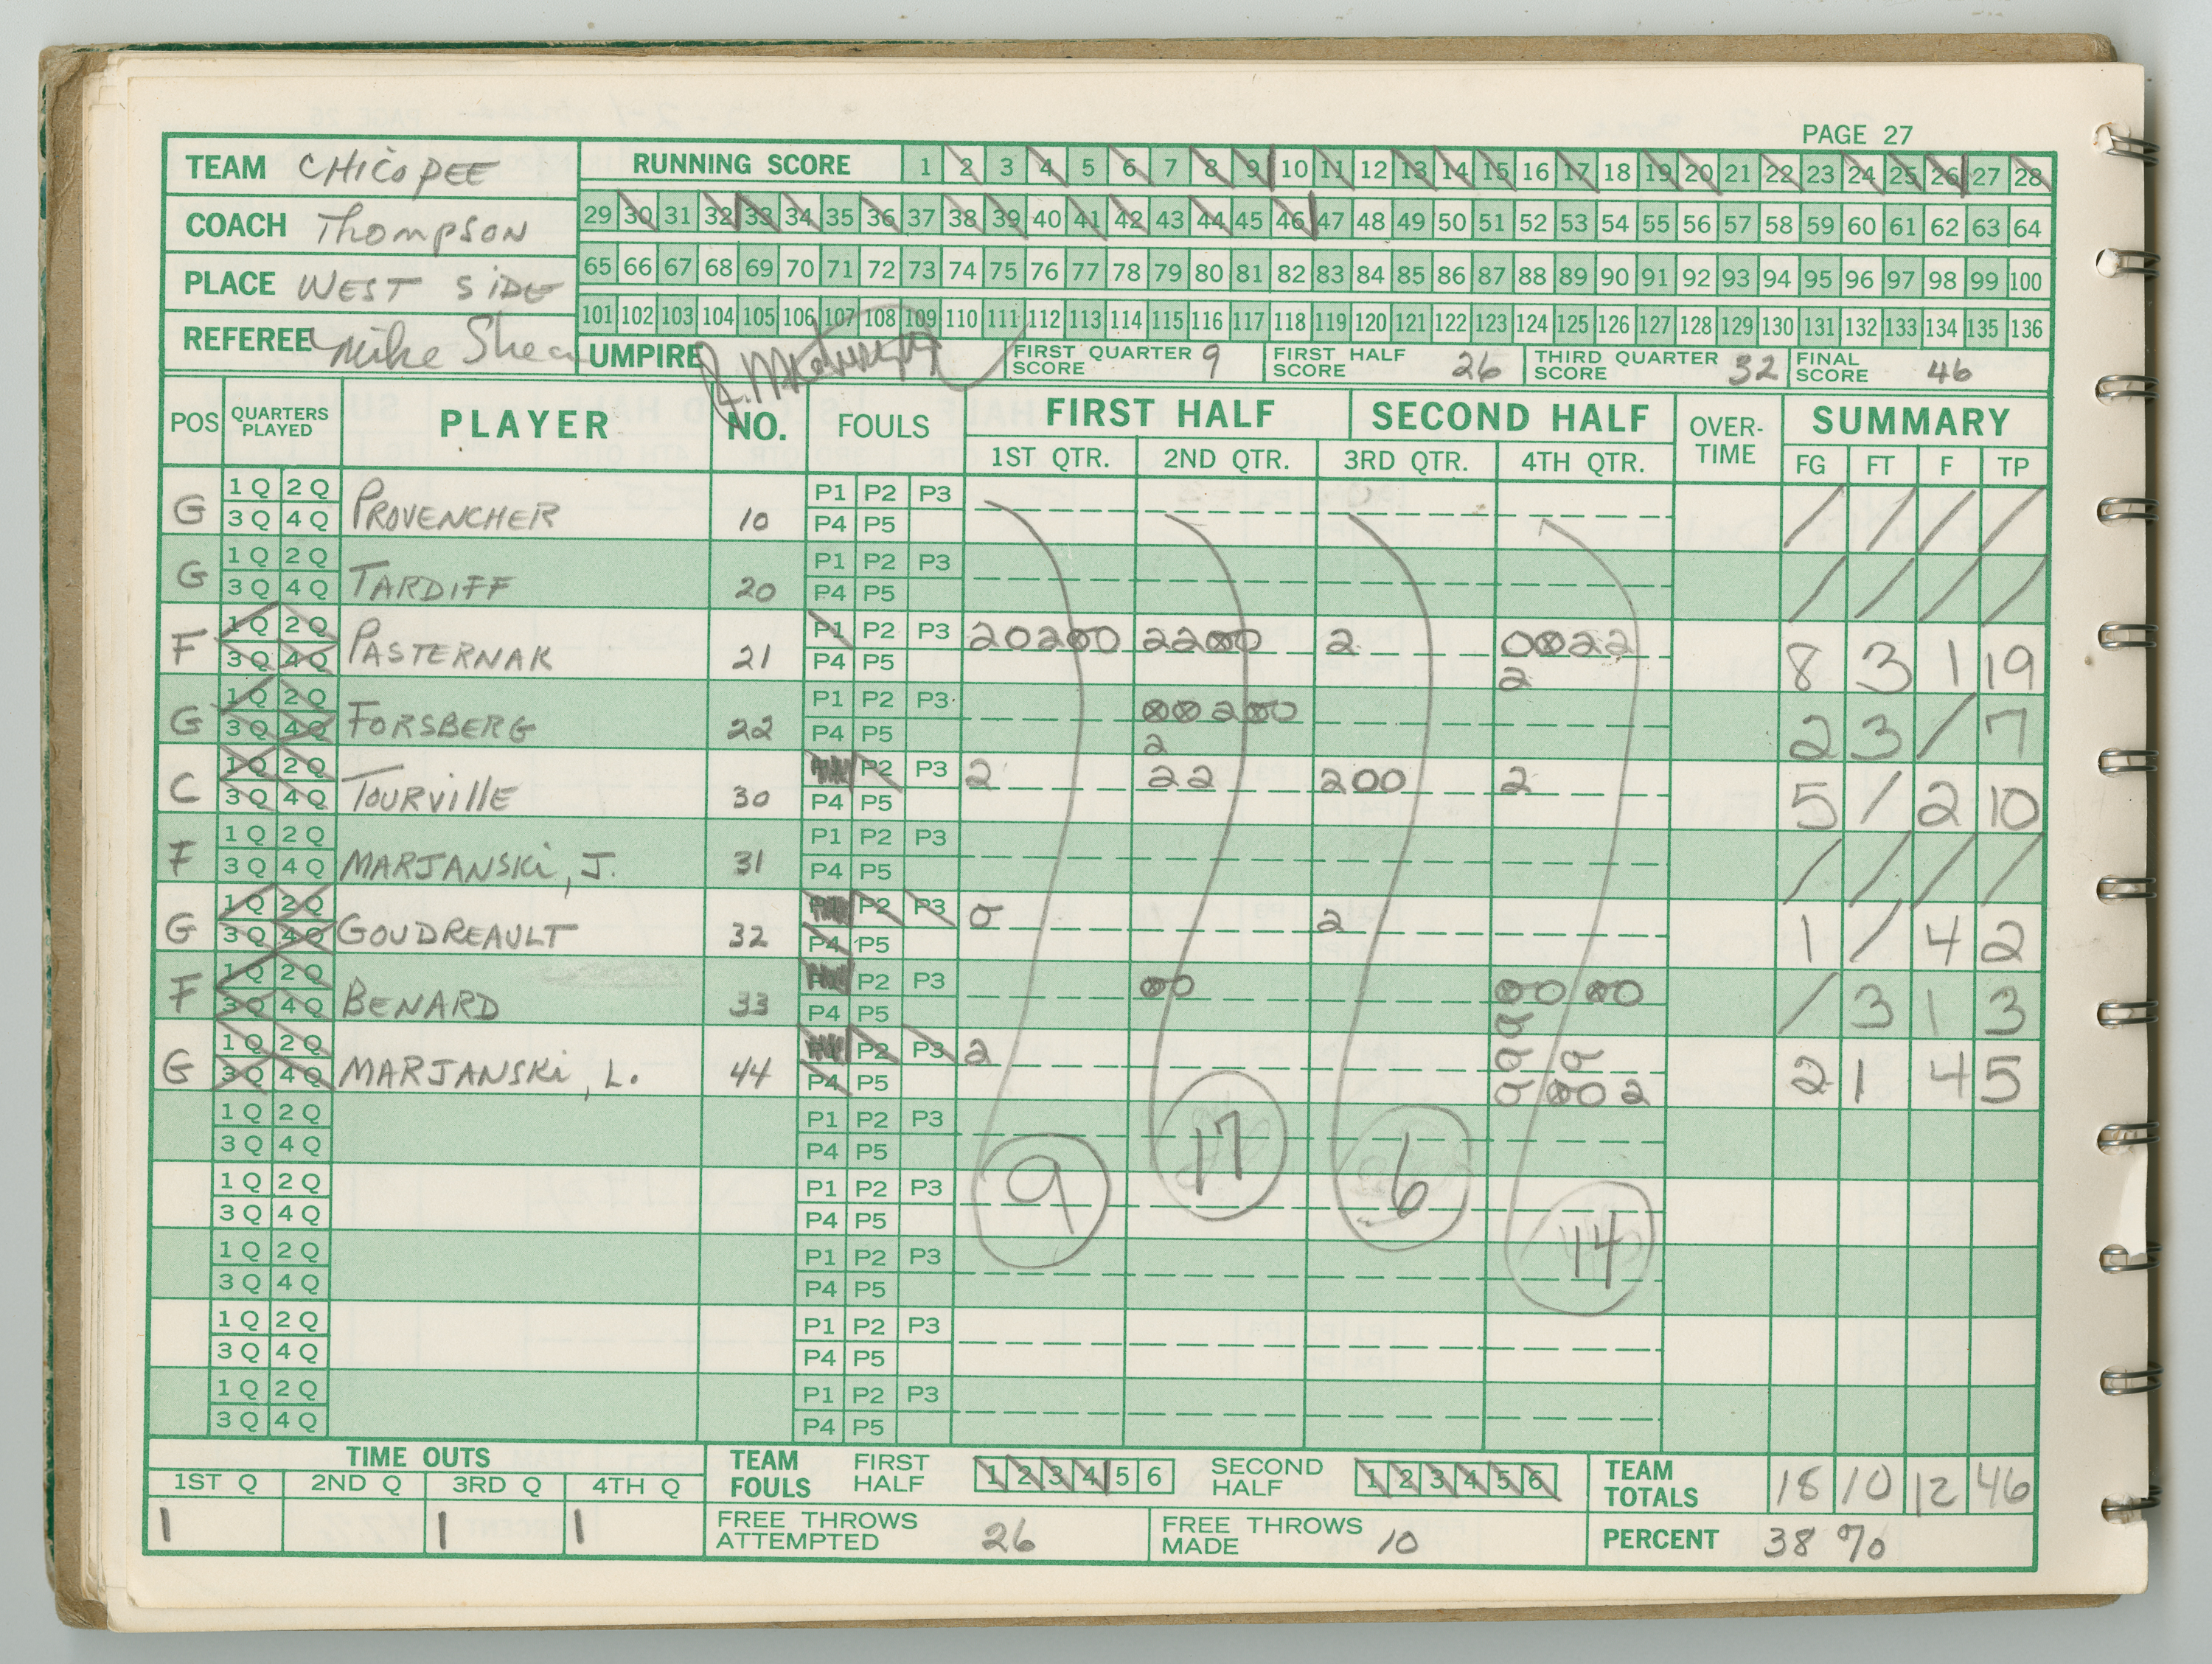 PAGE 27
TEAM CHICOPEE
RUNNING SCORE 1 2 3 4 5 6 7 8 9 10 11 12 13 14 15 16 17 18 19 20 21 22 23 24 25 26 27 28
COACH Thompson
29 30 31 32 33 34 35 36 37 38 39 40 41 42 43 44 45 46 47 48 49 50 51 52 53 54 55 56 57 58 59 60 61 62 63 64
PLACE WEST SIDE
65 66 67 68 69 70 71 72 73 74 75 76 77 78 79 80 81 82 83 84 85 86 87 88 89 90 91 92 93 94 95 96 97 98 99 100
101 102 103 104 105 106 107 108 109 110 111 112 113 114 115 116 117 118 119 120 121 122 123 124 125 126 127 128 129 130 131 132 133 134 135 136
REFEREE Mike Shea
UMPIRE FIRST QUARTER SCORE 9 FIRST HALF SCORE 26 THIRD QUARTER SCORE 32 FINAL SCORE 46
POS QUARTERS PLAYED PLAYER NO. FOULS FIRST HALF SECOND HALF OVER-TIME SUMMARY
1ST QTR. 2ND QTR. 3RD QTR. 4TH QTR. FG FT F TP
G 1Q 2Q 3Q 4Q PROVENCHER 10 P1 P2 P3 P4 P5 / / / /
G 1Q 2Q 3Q 4Q TARDIFF 20 P1 P2 P3 P4 P5 / / / /
F 1Q 2Q 3Q 4Q PASTERNAK 21 P1 P2 P3 P4 P5 202⊗0 22⊗0 2 0⊗22 2 8 3 1 19
G 1Q 2Q 3Q 4Q FORSBERG 22 P1 P2 P3 P4 P5 ⊗⊗2⊗0 2 2 3 / 7
C 1Q 2Q 3Q 4Q TOURVILLE 30 P2 P3 P4 P5 2 22 200 2 5 / 2 10
F 1Q 2Q 3Q 4Q MARJANSKI, J. 31 P1 P2 P3 P4 P5 / / / /
G 1Q 2Q 3Q 4Q GOUDREAULT 32 P2 P3 P4 P5 0 2 1 / 4 2
F 1Q 2Q 3Q 4Q BENARD 33 P2 P3 P4 P5 ⊗0 ⊗0 ⊗0 0 / 3 1 3
G 1Q 2Q 3Q 4Q MARJANSKI, L. 44 P2 P3 P4 P5 2 0 0 0 ⊗0 2 2 1 4 5
1Q 2Q 3Q 4Q P1 P2 P3 P4 P5
1Q 2Q 3Q 4Q P1 P2 P3 P4 P5
1Q 2Q 3Q 4Q P1 P2 P3 P4 P5
1Q 2Q 3Q 4Q P1 P2 P3 P4 P5
1Q 2Q 3Q 4Q P1 P2 P3 P4 P5
9 17 6 14
TIME OUTS
1ST Q 2ND Q 3RD Q 4TH Q
1 1 1
TEAM FOULS FIRST HALF 1 2 3 4 5 6 SECOND HALF 1 2 3 4 5 6 TEAM TOTALS 18 10 12 46
FREE THROWS ATTEMPTED 26 FREE THROWS MADE 10 PERCENT 38%